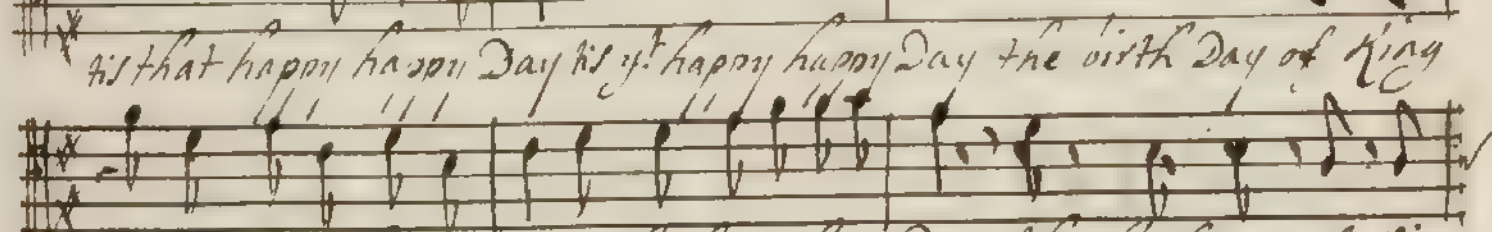 tis that happy happy Day tis yt happy happy Day the birth Day of King